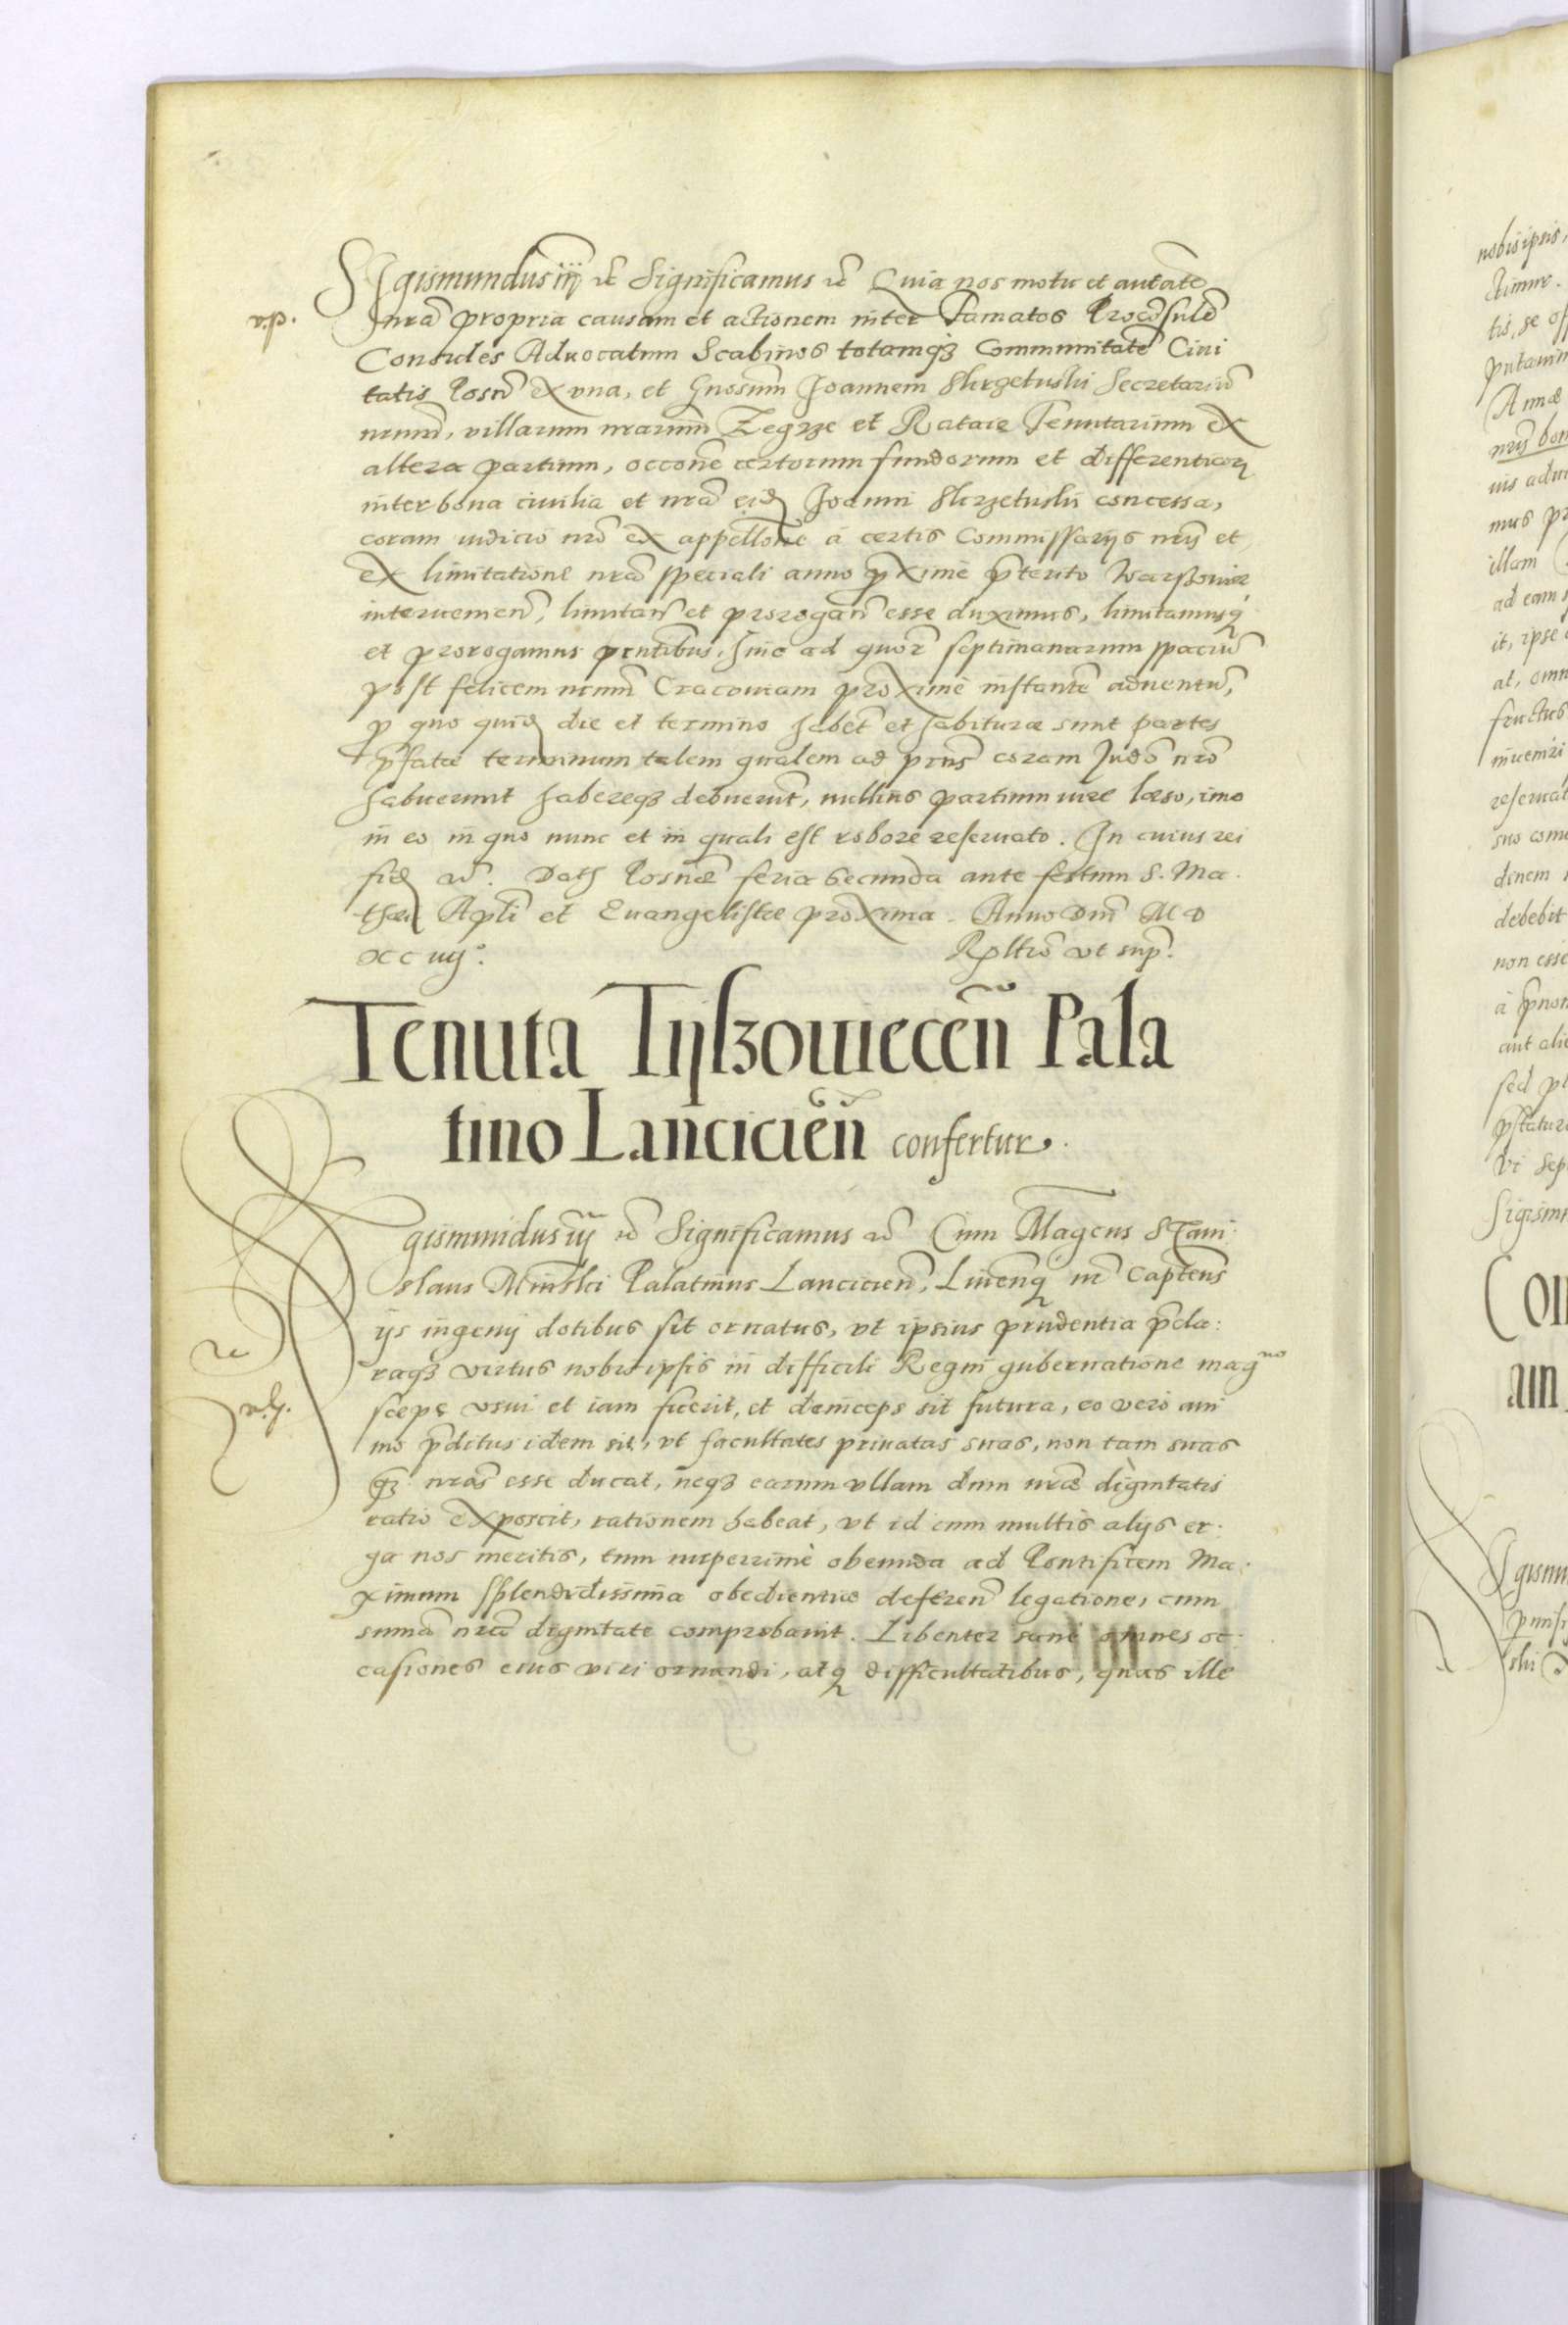 Sigismundus iij etc Significamus etc Quia nos motu et autate
v.p.
nrã propria causam et actionem inter Famatos Procõsulẽ
Consules Aduocatum Scabinos totamqȝ Communitatẽ Ciui
tatis Posnẽ ex vna, et Gnosum Joannem Skrzetuski Secretariũ
nrum, villarum nrarum Zegrze et Rataie Tenutarium ex
altera partium, occone certorum fundorum et differentiarꝝ
inter bona ciuilia et nrã eidẽ Joanni Skrzetuski concessa,
coram iudicio nrõ ex appellone à certis Commissarijs nris et
ex limitatione nrã speciali anno ꝓxime p̃terito Warssouiæ
interuenien̄, limitan̄ et prorogan̄ esse duximus, limitamusqꝫ
et prorogamus pr̃ntibus, hinc ad quor̃ septimanarum spaciũ
post felicem nrum Cracouiam proxime instantẽ aduentũ,
ꝓ quo quidẽ die et termino habẽt et habituræ sunt partes
p̃fatæ terminum talem qualem ad prñs coram Judõ nrõ
habuerunt habereqȝ debuerũt, nullius partium iure læso, imo
in eo in quo nunc et in quali est robore reseruato. In cuius rei
fidẽ etc. Datȝ Posnæ feria secunda ante festum S. Ma
thæi Apli et Euangelistæ proxima. Anno Dni M D
XC iiij°.
Rpltio vt sup̃.
Tenuta Tijszowiecen̄ Pala
tino Lancicien̄ confertur.
Sigismundus iij etc Significamus etc Cum Magcus Stani
slaus Minski Palatinus Lancicien̄, Liuen̄qꝫ nr̃ Captens
ijs ingenij dotibus sit ornatus, vt ipsius prudentia p̃cla:
raqȝ virtus nobis ipsis in difficili Regni gubernatione magno
sæpe vsui et iam fuerit, et deinceps sit futura, eo vero ani
mo p̃ditus idem sit, vt facultates priuatas suas, non tam suas
qȝ nras esse ducat, neqȝ earum vllam dum nræ dignitatis
ratio exposcit, rationem habeat, vt id cum multis alijs er:
ga nos meritis, tum nuperrimè obeunda ad Pontificem Ma:
ximum splendidissima obedientiæ deferen̄ legatione, cum
suma nrã dignitate comprobauit. Libenter sanè omnes oc
casiones eius viri ornandi, atqꝫ difficultatibus, quas ille